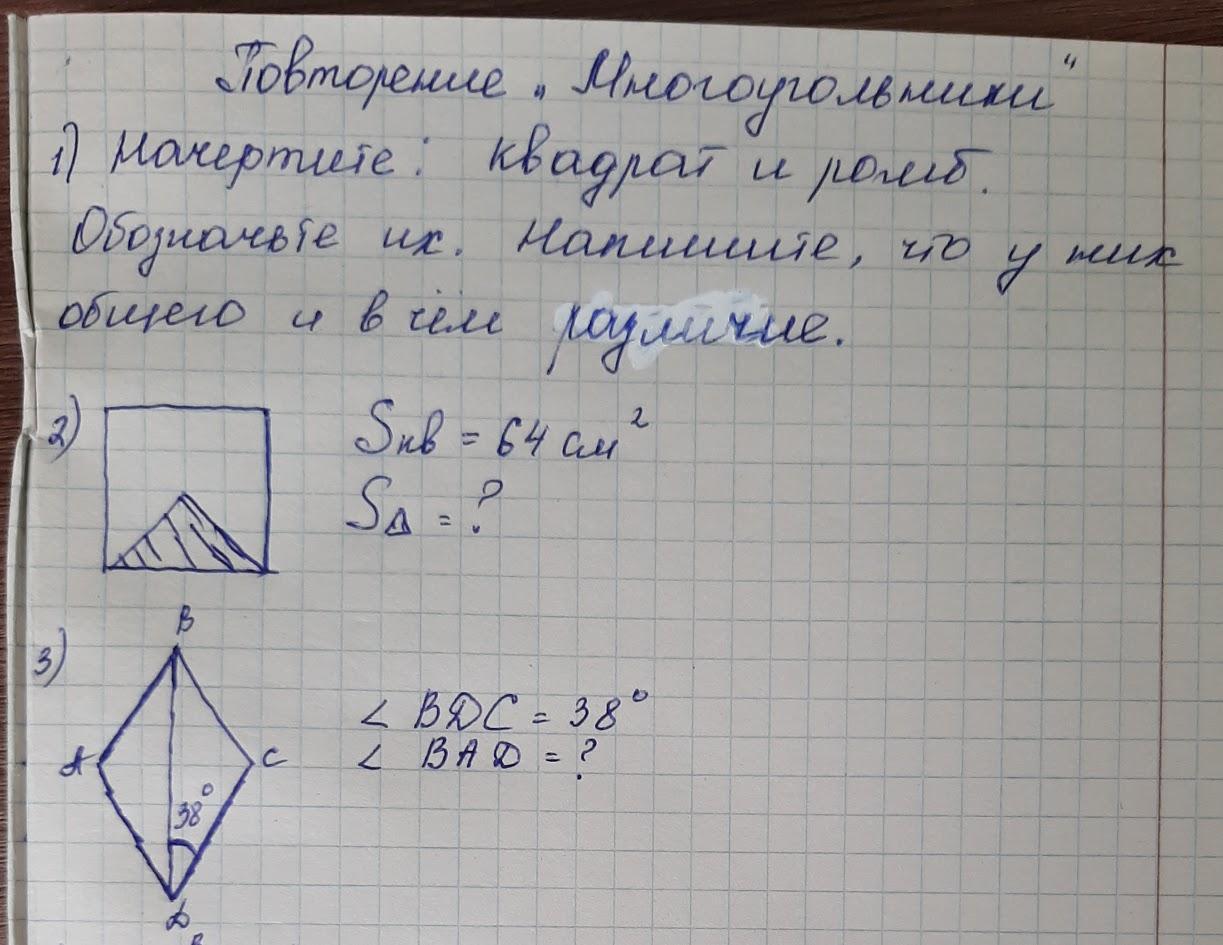 Повторение „Многоугольники“
1) Начертите: квадрат и ромб.
Обозначьте их. Напишите, что у них
общего и в чём различие.
2)
Sкв = 64 см²
S△ = ?
3)
B
A
C
38°
D
∠ BDC = 38°
∠ BAD = ?
B